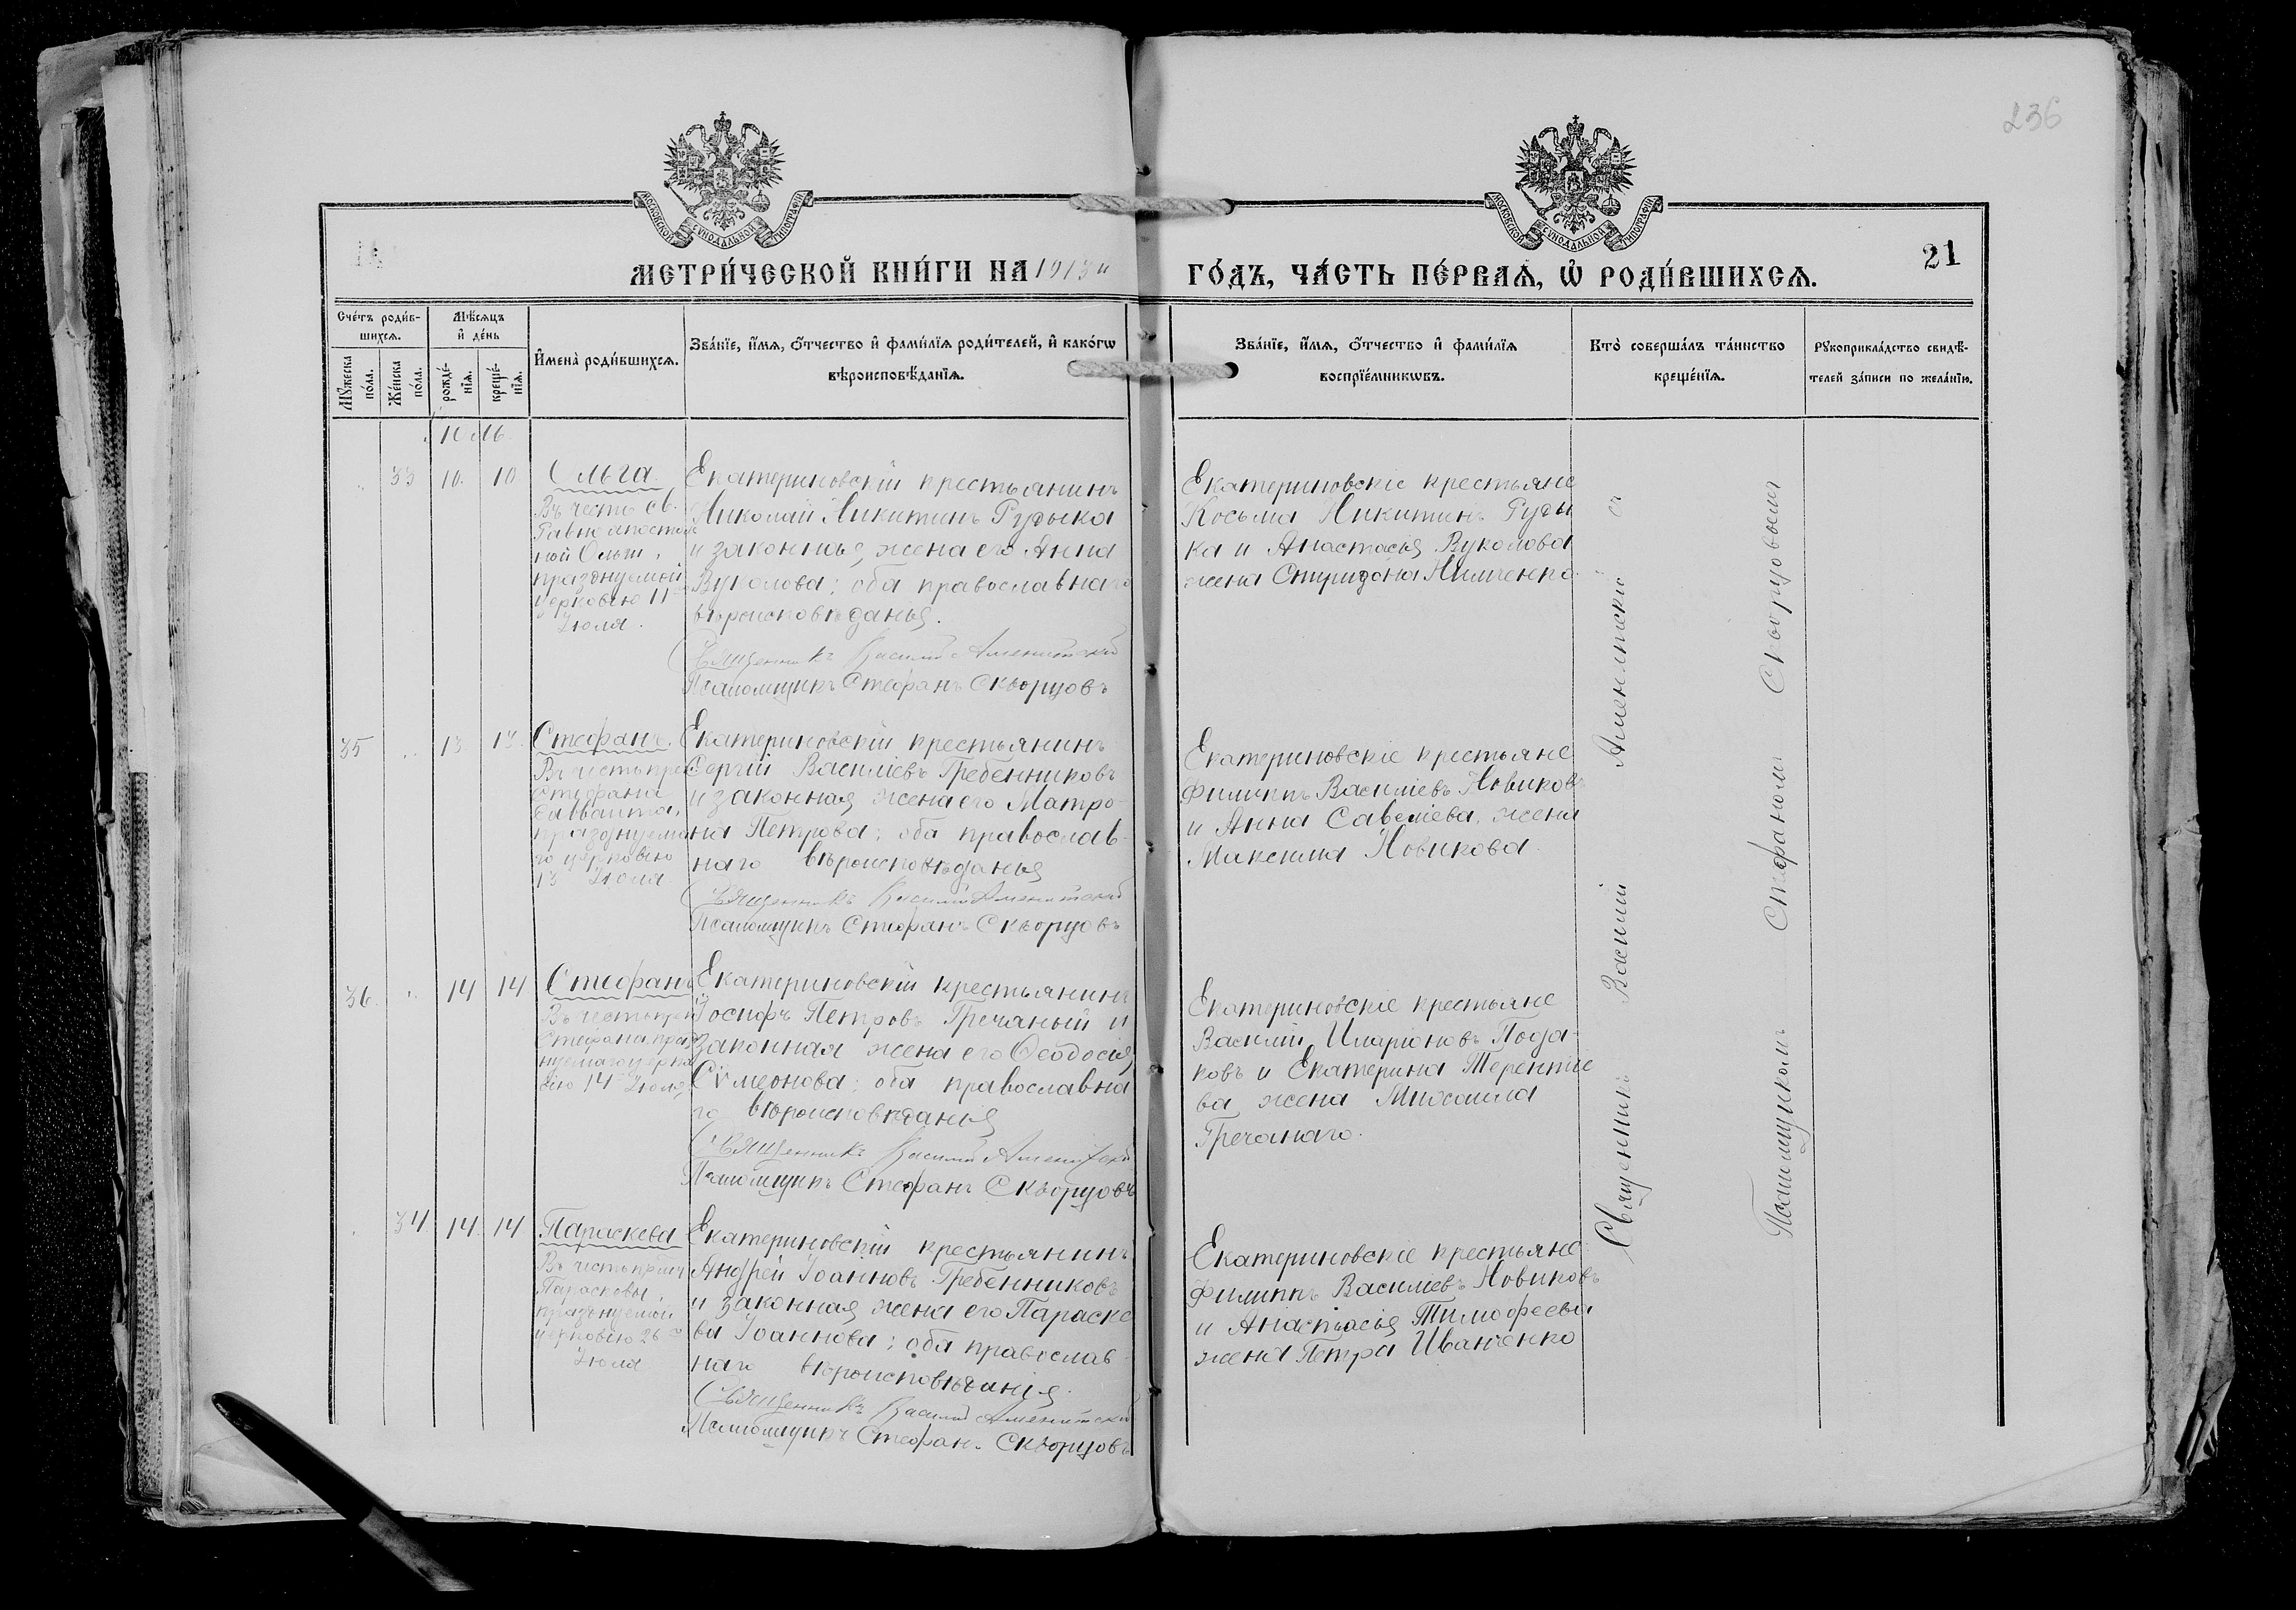 236
МОСКОВСКОЙ СѴНОДАЛЬНОЙ ТИПОГРАФІИ
МОСКОВСКОЙ СѴНОДАЛЬНОЙ ТИПОГРАФІИ
21
МЕТРИ́ЧЕСКОЙ КНИ́ГИ НА 1913й ГО́ДЪ, ЧА́СТЬ ПЕ́РВАѦ, Ѡ҆ РОДИ́ВШИХСѦ.
Сче́тъ роди́в-
шихсѧ.
Мꙋжеска по́ла.
Же́нска по́ла.
Мѣ́сѧцъ
и҆ де́нь
рожде́-
нїѧ.
креще́-
нїѧ.
И҆мена̀ роди́вшихсѧ.
Зва́нїе, и҆́мѧ, ѻ҆́тчество и҆ фами́лїѧ роди́телей, и҆ како́гѡ
вѣроисповѣ́данїѧ.
Зва́нїе, и҆́мѧ, ѻ҆́тчество и҆ фами́лїѧ
воспрїе́мникѡвъ.
Кто̀ соверша́лъ та́инство
креще́нїѧ.
Рꙋкоприкла́дство свидѣ́-
телей за́писи по жела́нїю.
33 10. 10
Ольга.
Въ честь св.
Равно апостоль
ной Ольги,
празднуемой
церковію 11го
Іюля.
Екатериновскій крестьянинъ
Николай Никитинъ Рудыка
и законная жена его Анна
Вуколова; оба православнаго
вѣроисповѣданія.
Священникъ Василій
Псаломщикъ Стефанъ Скворцовъ
Екатериновскіе крестьяне
Косьма Никитинъ Руды
ка и Анастасія Вуколова
жена Спиридона Нимченко.
35 13 13.
Стефанъ.
Въ честь преп
Стефана
Савваита,
празднуема
го церковію
13 Іюля.
Екатериновскій крестьянинъ
Сергій Василіевъ Гребенниковъ
и законная жена его Матро-
на Петрова; оба православ-
наго вѣроисповѣданія
Священникъ Василій
Псаломщикъ Стефанъ Скворцовъ
Екатериновскіе крестьяне
Филиппъ Василіевъ Новиковъ
и Анна Савеліева, жена
Максима Новикова.
36. 14 14
Стефанъ
Въ честь преп
Стефана, праз
нуемаго церко
вію 14 Іюля,
Екатериновскій крестьянинъ
Іосифъ Петровъ Гречаный и
законная жена его Ѳеодосія
Сѵмеонова; оба православна
го вѣроисповѣданія
Священникъ Василій
Псаломщикъ Стефанъ Скворцовъ
Екатериновскіе крестьяне
Василій Иларіоновъ
и Екатерина Терентіе
ва жена Михаила
Гречанаго.
34. 14. 14
Параскева
Въ честь прмч
Параскевы,
празднуемой
церковію 26го
Іюля
Екатериновскій крестьянинъ
Андрей Іоанновъ Гребенниковъ
и законная жена его Параске
ва Іоаннова; оба православ
наго вѣроисповѣданія.
Священникъ Василій
Псаломщикъ Стефанъ Скворцовъ
Екатериновскіе крестьяне
Филиппъ Василіевъ Новиковъ
и Анастасія Тимофеева
жена Петра Иванченко
Священникъ Василій съ
Псаломщикомъ Стефаномъ Скворцовымъ